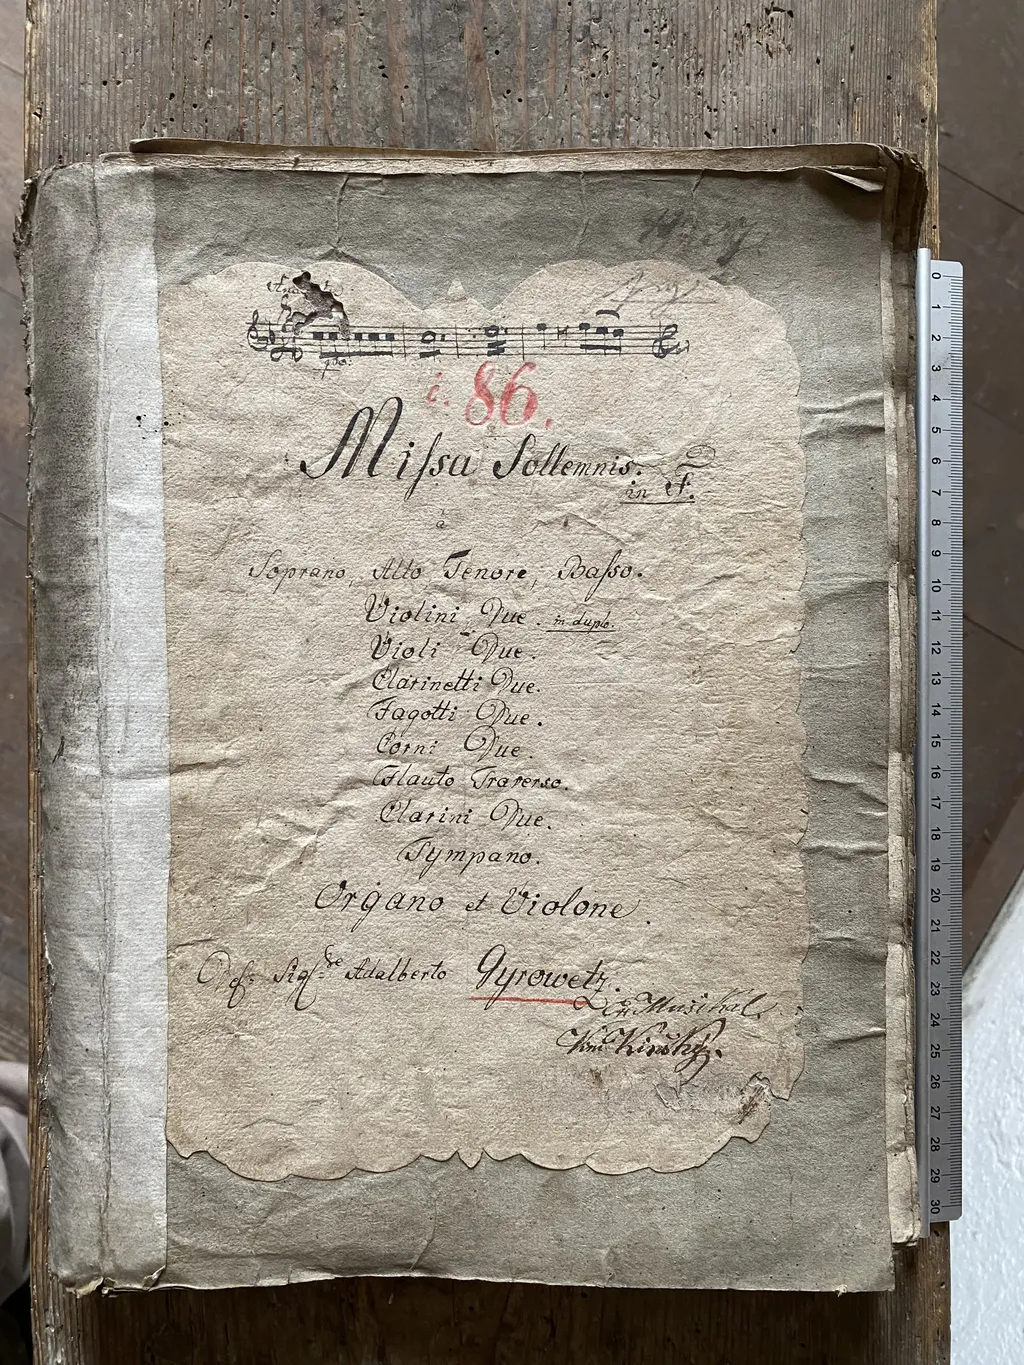 i. 86.
Missa Sollemnis.
in F.
à
Soprano, Alto Tenore, Basso.
Violini Due. in duplo.
Violi Due.
Clarinetti Due.
Fagotti Due.
Corni Due.
Flauto Traverso.
Clarini Due.
Tympano.
Organo et Violone.
Del Sigre Adalberto Gyrowetz.
Musikal
Kinský.
0 1 2 3 4 5 6 7 8 9 10 11 12 13 14 15 16 17 18 19 20 21 22 23 24 25 26 27 28 29 30